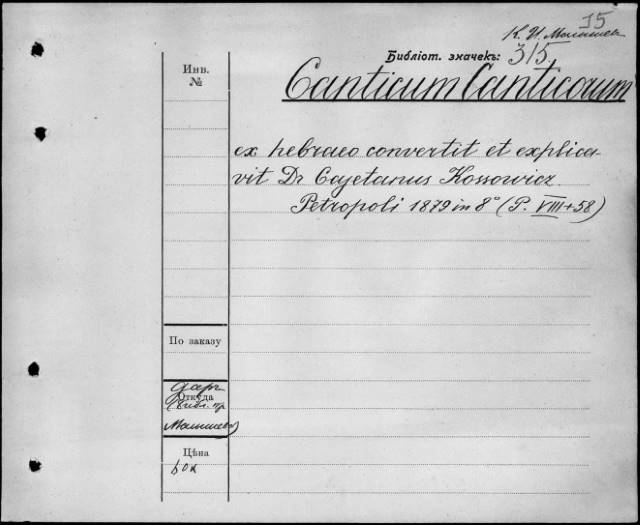 15
К. И. Малышев
Библіот. значекъ: 315.
Инв.
№
Canticum Canticorum
ex hebraeo convertit et explica-
vit Dr Cajetanus Kossowicz
Petropoli 1879 in 8° (P. VIII+58)
По заказу
даръ
Откуда
(библ. пр
Малышева)
Цѣна
60к